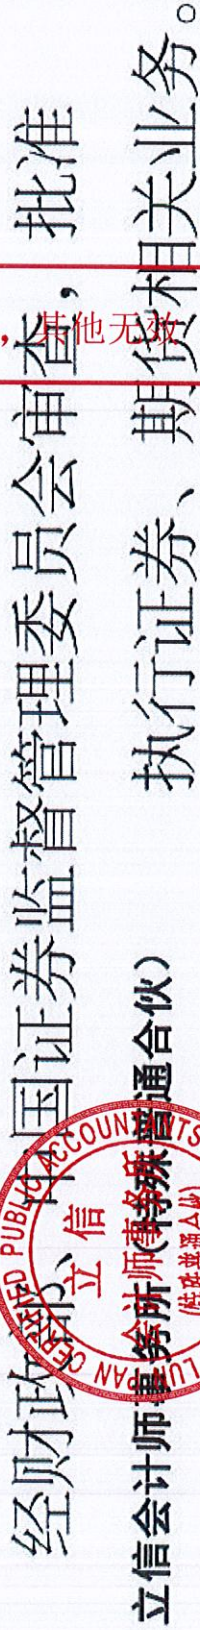 经财政部、中国证券监督管理委员会审查，批准
立信会计师事务所（特殊普通合伙） 执行证券、期货相关业务。
，其他无效
CERTIFIED PUBLIC ACCOUNTANTS
LUNPAN
立信
会计师事务所
(特殊普通合伙)